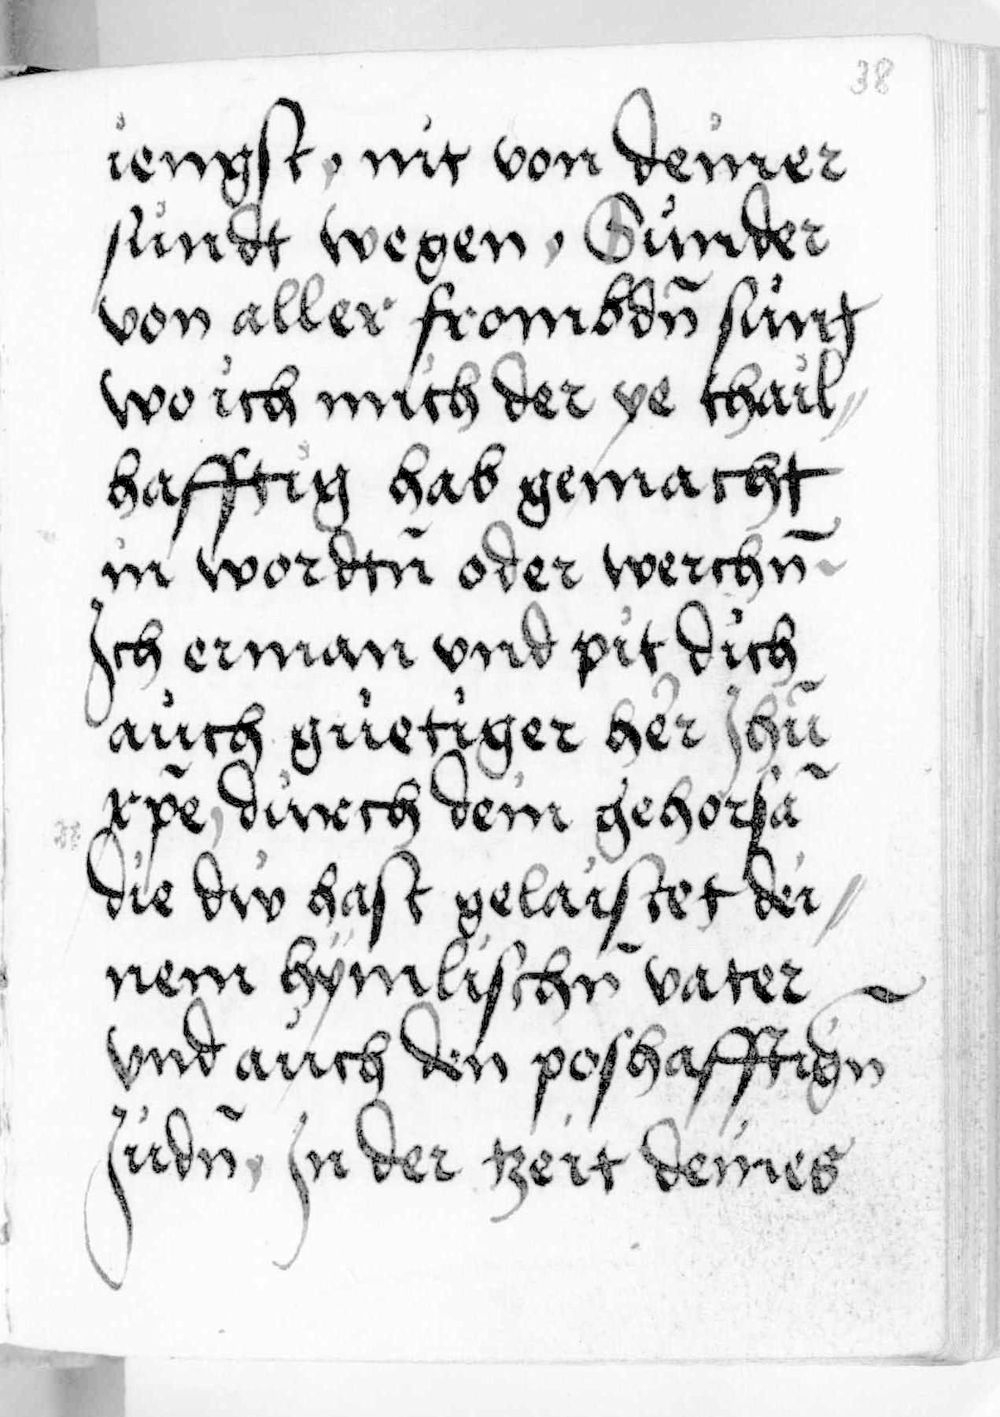 38
iengst, nit von deiner
sündt wegen, Sünder
von aller frombdn̄ sünt
wo ich mich der ye thail⸗
hafftig hab gemacht
in wordtn̄ oder werchn̄
Ich erman vnd pit dich
auch güetiger her Jhū
xp̄e, durch dein gehorsā
die dw hast gelaistet dei⸗
nem hÿmlischn̄ vater
vnd auch den poshafftign̄
Judn̄, In der tzeit deines